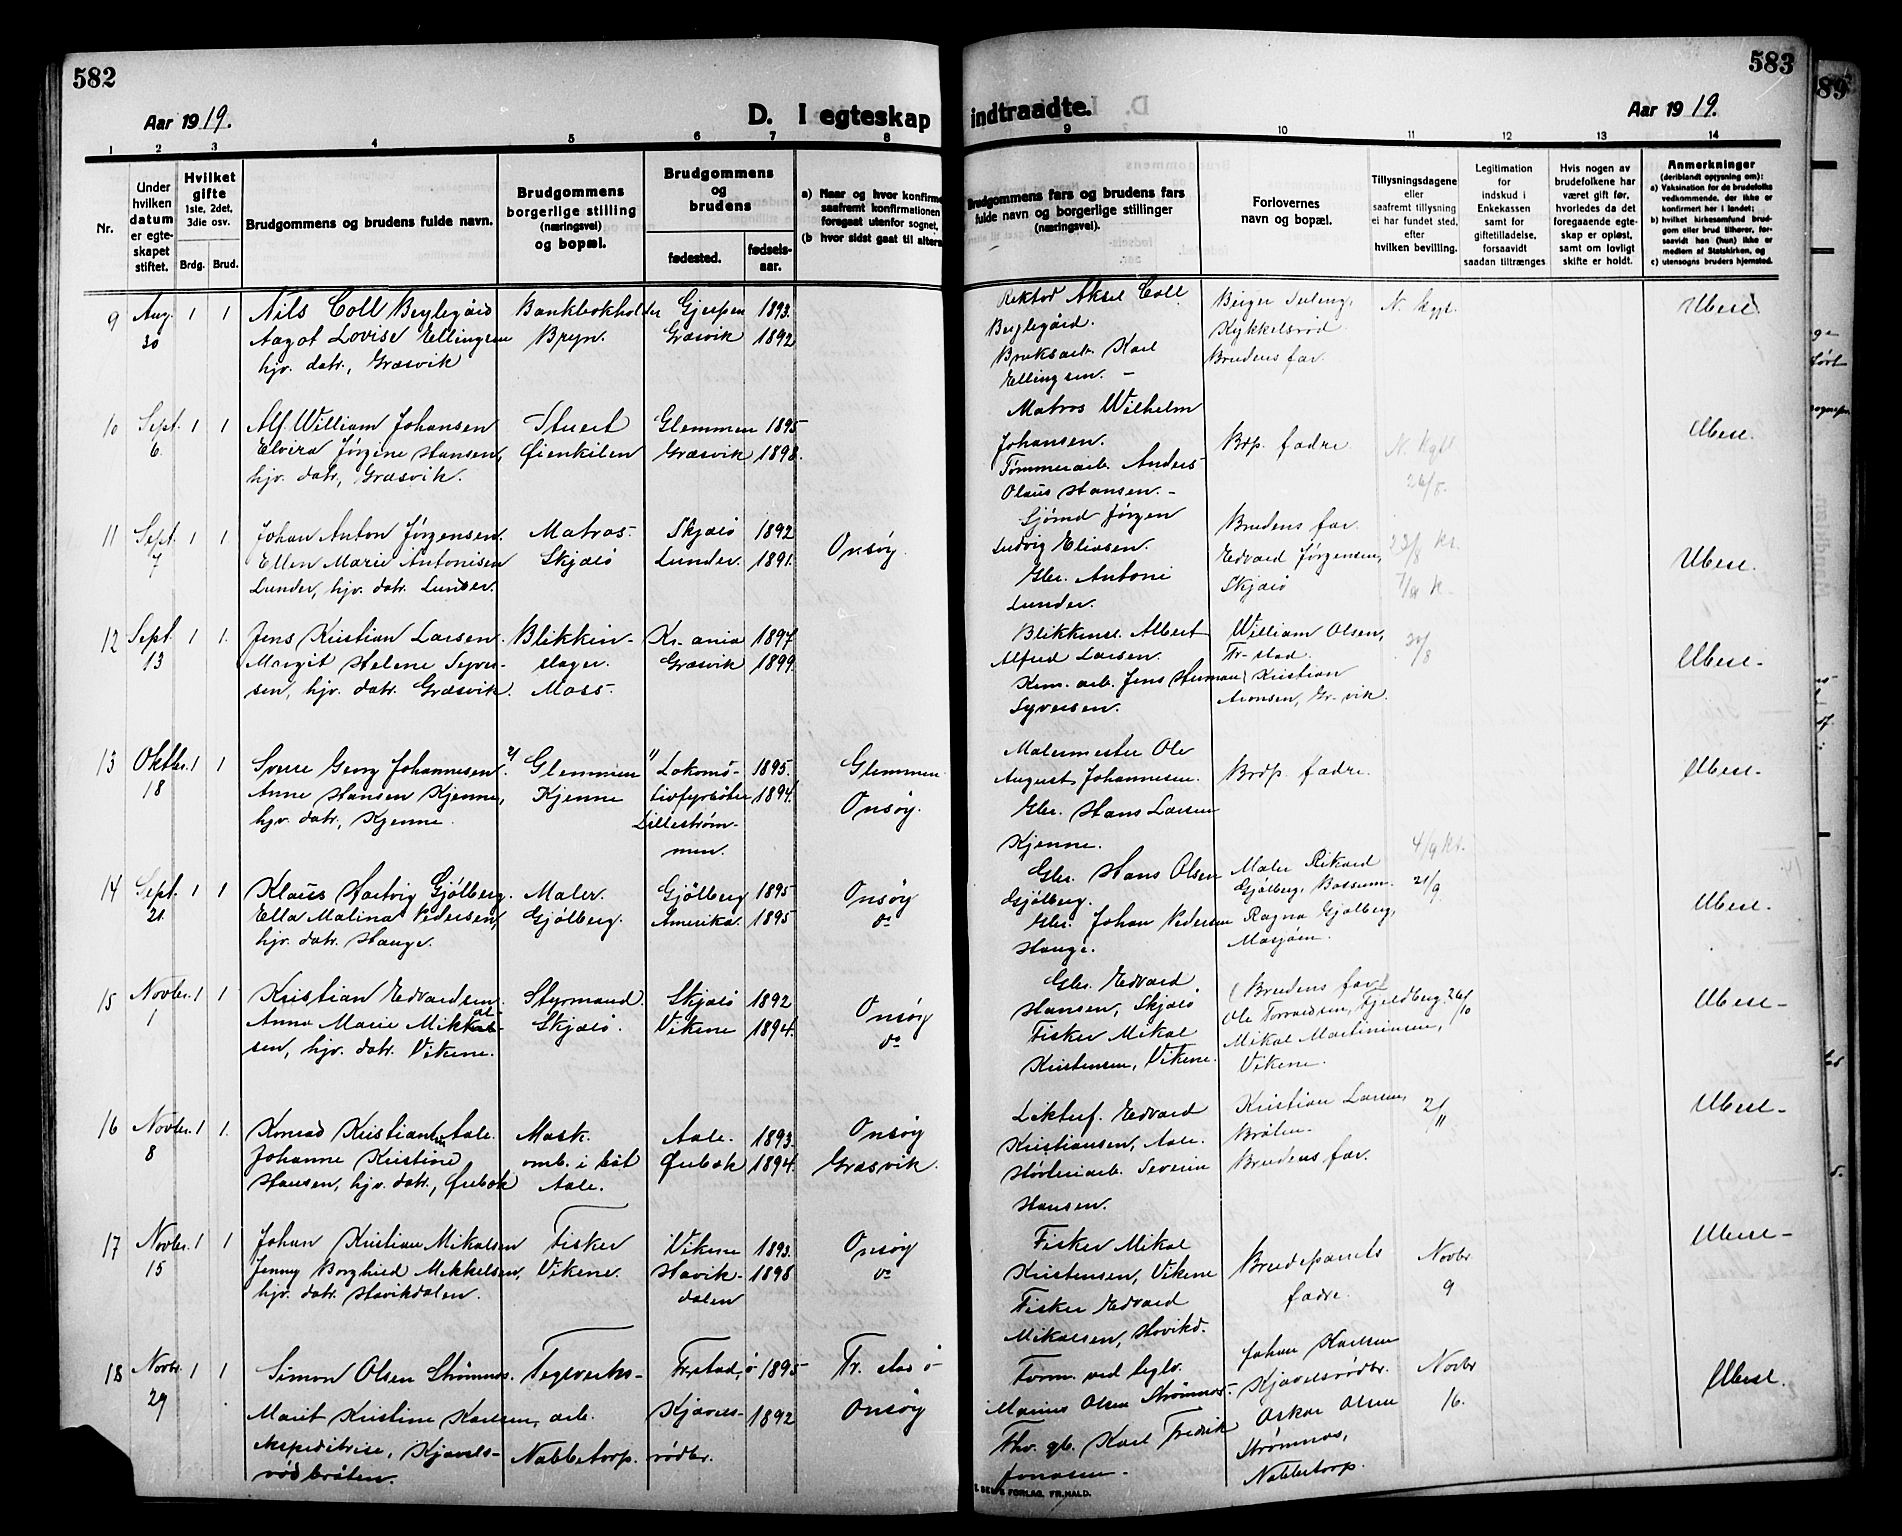 582
583
Aar 1919.
D. I egteskap indtraadte.
Aar 1919.
1 2 3 4 5 6 7 8 9 10 11 12 13 14
Nr.
Under hvilken datum er egteskapet stiftet.
Hvilket gifte 1ste, 2det, 3die osv.
Brdg. Brud.
Brudgommens og brudens fulde navn.
Brudgommens borgerlige stilling (næringsvei) og bopæl.
Brudgommens og brudens
fødested.
fødselsaar.
a) Naar og hvor konfirme
saafremt konfirmationen
foregaat utenfor sognet,
(b hvor sidst gaat til alters
Brudgommens fars og brudens fars fulde navn og borgerlige stillinger (næringsvei).
Forlovernes navn og bopæl.
Tillysningsdagene eller saafremt tillysning ei har fundet sted, efter hvilken bevilling.
Legitimation for indskud i Enkekassen samt for giftetilladelse, forsaavidt saadan tiltrænges
Hvis nogen av brudefolkene har været gift før, hvorledes da det foregaaende egteskap er opløst, samt om lovligt skifte er holdt.
Anmerkninger
(deriblandt opplysning om):
a) Vaksination for de brudefolks vedkommende, der ikke er konfirmert her i landet;
b) hvilket kirkesamfund brudgom eller brud tilhører, forsaavidt han (hun) ikke er medlem af Statskirken, og
c) utensogns bruders hjemsted.
9 Aug. 30 1 1
Nils Coll Beylegård
Aagot Lovise Ellingsen
hjv. datr., Græsvik
Bankbokholder
Bryn.
Gjerpen 1893.
Græsvik 1892
Rektod Aksel Coll
Beylegård.
Bruksarb. Karl
Ellingsen. –
Birger
Kykkelsrød.
Brudens far.
N. kgt.
Ubesl.
10 Sept. 6. 1 1
Alf William Johansen
Elvira Jørgine Hansen,
hjv. datr, Græsvik.
Stuert
Øienkilen
Glemmen 1895
Græsvik 1898.
Matros Wilhelm
Johansen.
Tømmerarb. Anders
Olaus Hansen. –
Brdp. fædre.
N. kgt.
26/8.
Ubesl.
11 Sept. 7 1 1
Johan Anton Jørgensen.
Ellen Marie Antonisen
Lunder, hjv. datr. Lunder.
Matros.
Skjælø
Skjælø 1892
Lunder. 1891.
Onsøy.
Sjømd Jørgen
Ludvig Eliasen.
Gbr. Antoni
Lunder.
Brudens far.
Edvard Jørgensen,
Skjælø
23/8 kr.
Ubesl.
12 Sept. 13 1 1.
Jens Kristian Larsen.
Margit Helene Syver-
sen, hjv. datr. Græsvik.
Blikken-
slager.
Moss.
Kr.ania 1897
Græsvik 1899.
Blikkensl. Albert
Alfred Larsen.
Kem. arb. Jens Herman
Syversen.
William Olsen,
Fr-stad.
Kristian
Aronsen, Gr-vik.
30/8
Ubesl. –
13 Oktbr. 18 1 1
Sverre Georg Johannesen.
Anne Hansen Kjenne,
hjv. datr, Kjenne.
2) Glemmen
Kjenne
1) Lokomo-
tivfyrbøter
Lillestrøm-
men.
1895.
1894.
Glemmen
Onsøy.
Malermester Ole
August Johannesen.
Gbr. Hans Larsen
Kjenne.
Brdp. fædre.
Ubesl. –
14 Sept. 21. 1 1
Klaus Hartvig Gjølberg.
Ella Malina Pedersen,
hjv. datr. Hauge.
Maler.
Gjølberg.
Gjølberg 1895
Amerika. 1895
Onsøy
do
Gbr. Hans Olsen
Gjølberg.
Gbr. Johan Pedersen
Hauge.
Maler Rikard
Gjølberg, Bossum.
Ragna Gjølberg,
Mosjøen.
4/9 kr.
21/9
Ubesl. –
15 Novbr. 1 1 1
Kristian Edvardsen
Anna Marie Mikkal-
sen, hjv. datr. Vikene.
Styrmand.
Skjælø.
Skjælø 1892
Vikene 1894.
Onsøy
do
Gbr. Edvard
Hansen, Skjælø
Fisker Mikal
Kristensen, Vikene.
(Brudens far)
Ole Torvaldsen, Fjeldberg.
Mikal Martininsen,
Vikene.
26/10
Ubesl –
16 Novbr. 8 1 1.
Konrad Kristiansen Aale.
Johanne Kristine
Hansen, hjv. datr., Ørebæk
Mask.
omb. i båt
Aale.
Aale. 1893.
Ørebæk 1894.
Onsøy
Græsvik.
Likterf. Edvard
Kristiansen, Aale.
Høvleriarb. Severin
Hansen.
Kristian Larsen,
Bråten.
Brudens far.
2/11
Ubesl –
17 Novbr. 15 1 1
Johan Kristian Mikalsen
Jenny Borghild Mikkelsen,
hjv. datr. Havikdalen.
Fisker
Vikene.
Vikene 1893.
Havik- 1898
dalen
Onsøy
do
Fisker Mikal
Kristensen, Vikene
Fisker Edvard
Mikalsen, Hovikd.
Brudeparets
fædre.
Novbr
9
Ubesl –
18 Novbr. 29 1 1
Simon Olsen Strømnes.
Marit Kristine Karlsen,
ekspeditrise, Kjøvels-
rødbråten.
Teglverks-
arb.
Nabbetorp.
Fr.stad, ø 1895
Kjøvels- 1892
rødbr.
Fr. stad ø
Onsøy
Form. ved teglv.
Marius Olsen Strømnes.
Fhv. gb. Karl Fredrik
Jonasen –
Johan Karlsen
Kjøvelsrødbr.
Oskar Olsen
Strømnes,
Nabbetorp.
Novbr
16.
Ubesl.
FORLAG. FR.HALD.